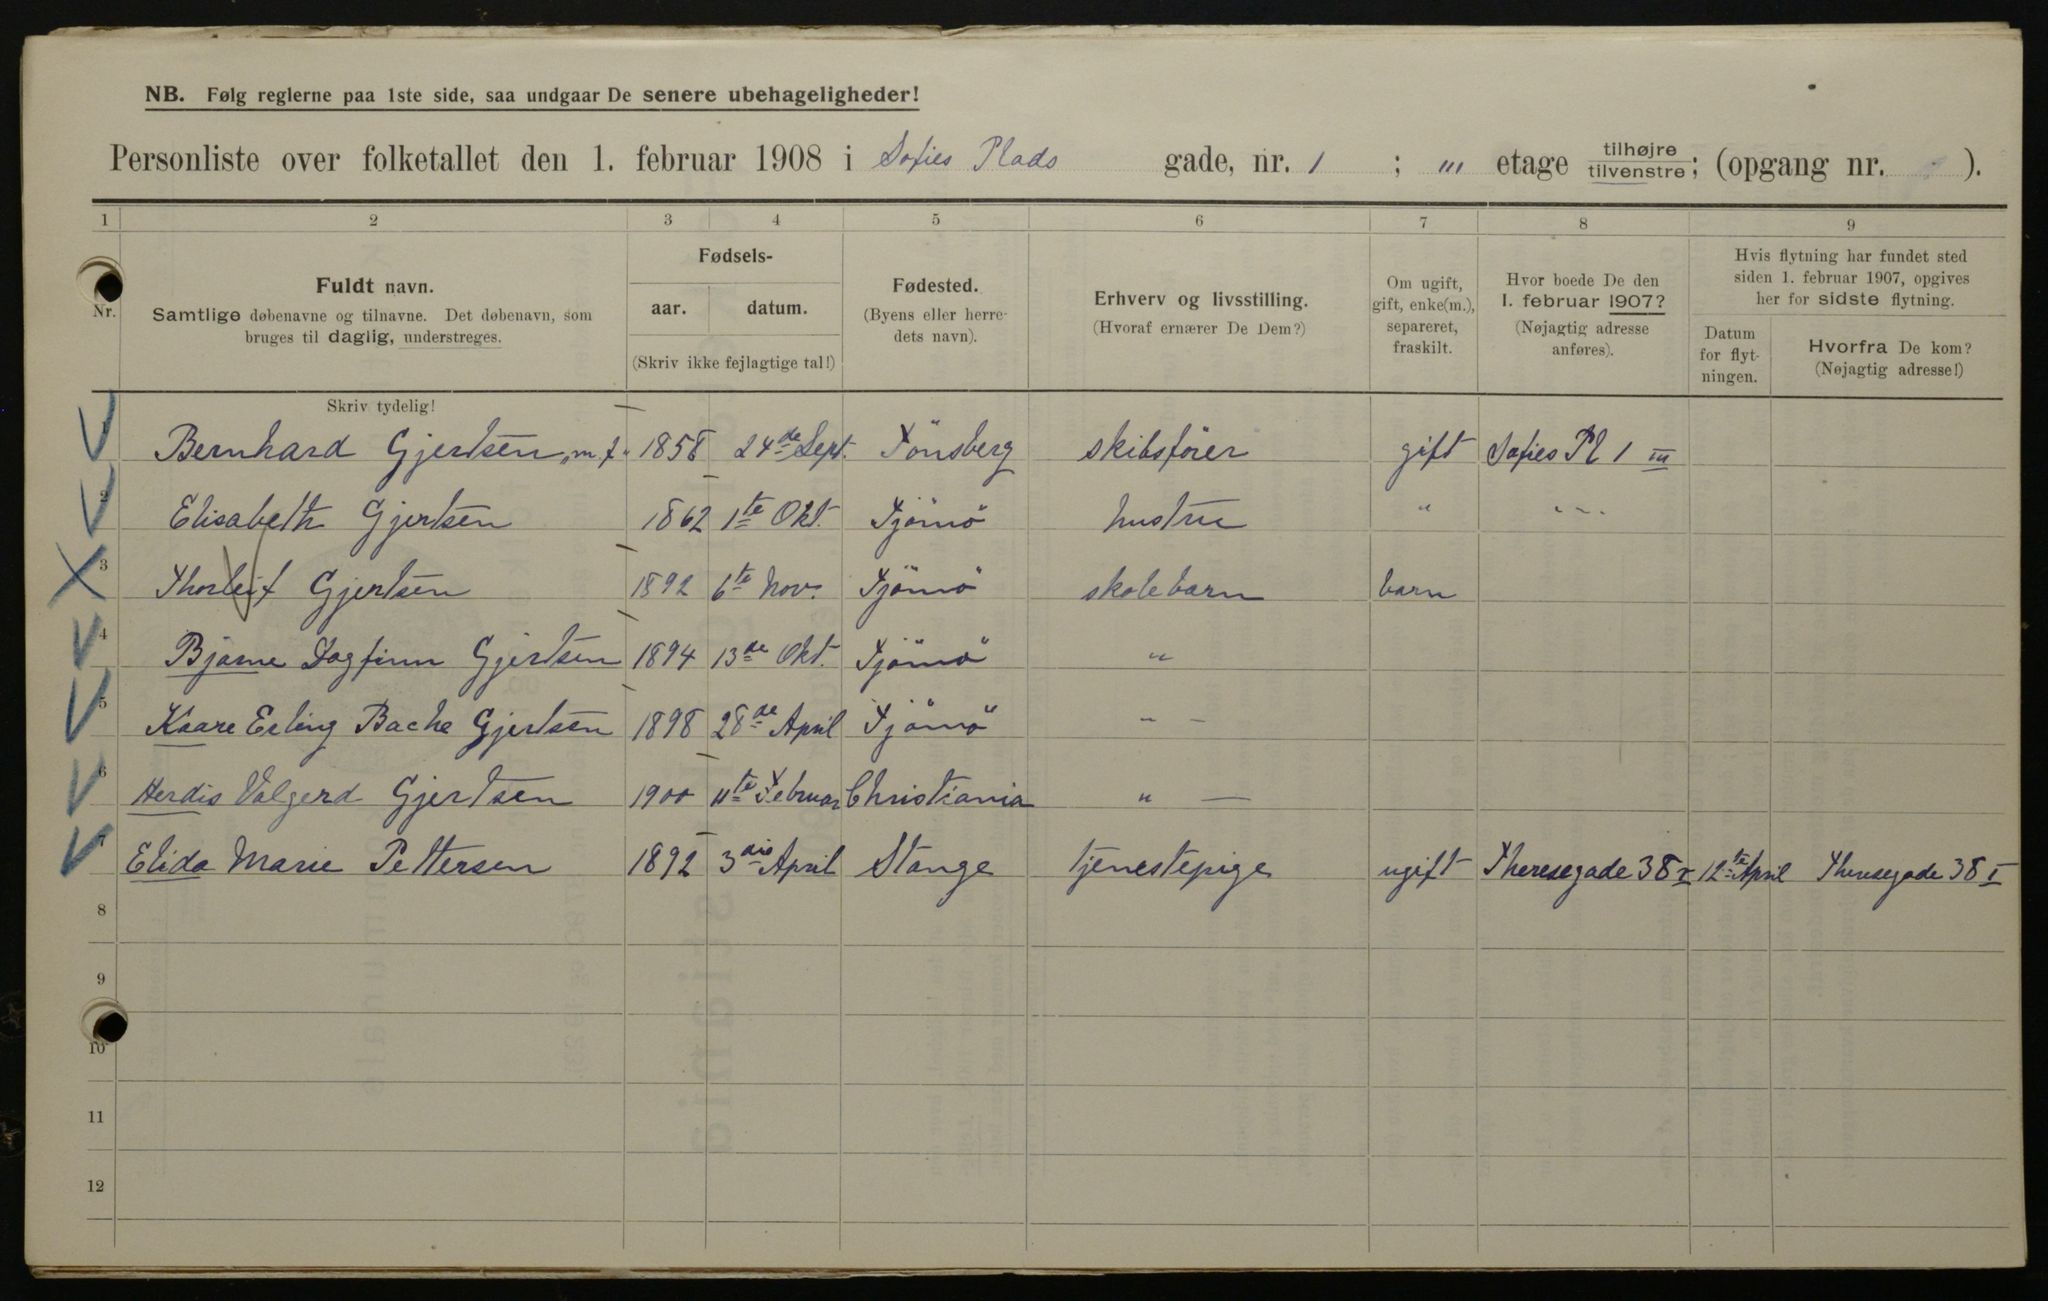 NB. Følg reglerne paa 1ste side, saa undgaar De senere ubehageligheder!
Personliste over folketallet den 1. februar 1908 i Sofies Plads gade, nr. 1 ; III etage tilhøjre tilvenstre; (opgang nr. ).
1 2 3 4 5 6 7 8 9
Nr.
Fuldt navn.
Samtlige døbenavne og tilnavne. Det døbenavn, som
bruges til daglig, understreges.
Fødsels-
aar. datum.
(Skriv ikke fejlagtige tal!)
Fødested.
(Byens eller herre-
dets navn).
Erhverv og livsstilling.
(Hvoraf ernærer De Dem?)
Om ugift,
gift, enke(m.),
separeret,
fraskilt.
Hvor boede De den
1. februar 1907?
(Nøjagtig adresse
anføres).
Hvis flytning har fundet sted
siden 1. februar 1907, opgives
her for sidste flytning.
Datum
for flyt-
ningen.
Hvorfra De kom?
(Nøjagtig adresse!)
Skriv tydelig!
Bernhard Gjertsen „m.f." 1858 24de Sept. Tönsberg skibsförer gift Sofies Pl 1 III
2 Elisabeth Gjertsen 1862 1te Okt. Tjömö hustru " "
3 Thorleif Gjertsen 1892 6te Nov. Tjömö skolebarn barn
4 Bjarne Dagfinn Gjertsen 1894 13de Okt. Tjömö "
5 Kaare Erling Bache Gjertsen 1898 28de April Tjömö " –
6 Herdis Valgerd Gjertsen 1900 11te Februar Christiania " —
7 Elida Marie Pettersen 1892 3die April Stange tjenestepige ugift Theresegade 38 I 12te April Theresegade 38 I
8
9
10
11
12